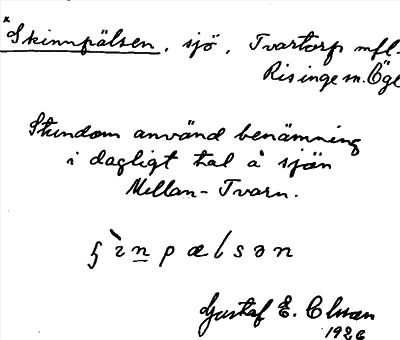 *Skinnpälsen, sjö, Tvartorp mfl.
Risinge m. Ögl
Stundom använd benämning
i dagligt tal å sjön
Mellan-Tvarn.
Gustaf E. Olsson
1926